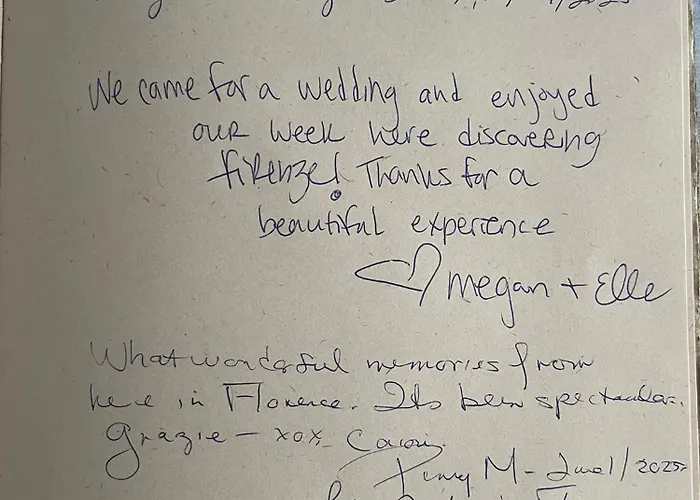 2025
We came for a wedding and enjoyed
our week here discovering
firenze! Thanks for a
beautiful experience
megan + Elle
What wonderful memories from
here in Florence. Its been spectacular.
Grazie - xox,
M - 2025